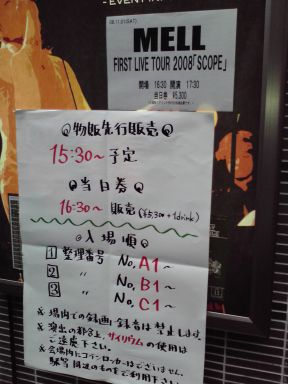 08.11.01(SAT)
MELL
FIRST LIVE TOUR 2008「SCOPE」
開場 16:30 開演 17:30
当日券 ¥5,300
物販先行販売
15:30〜予定
当日券
16:30〜 販売(¥5300+1drink)
入場順
1 整理番号 No,A1〜
2 〃 No,B1〜
3 〃 No,C1〜
※場内での録画・録音は禁止します。
※演出の都合上、サイリウムの使用は
ご遠慮下さい。
※会場内にコインロッカーはございません。
駅等周辺のものをご利用下さい